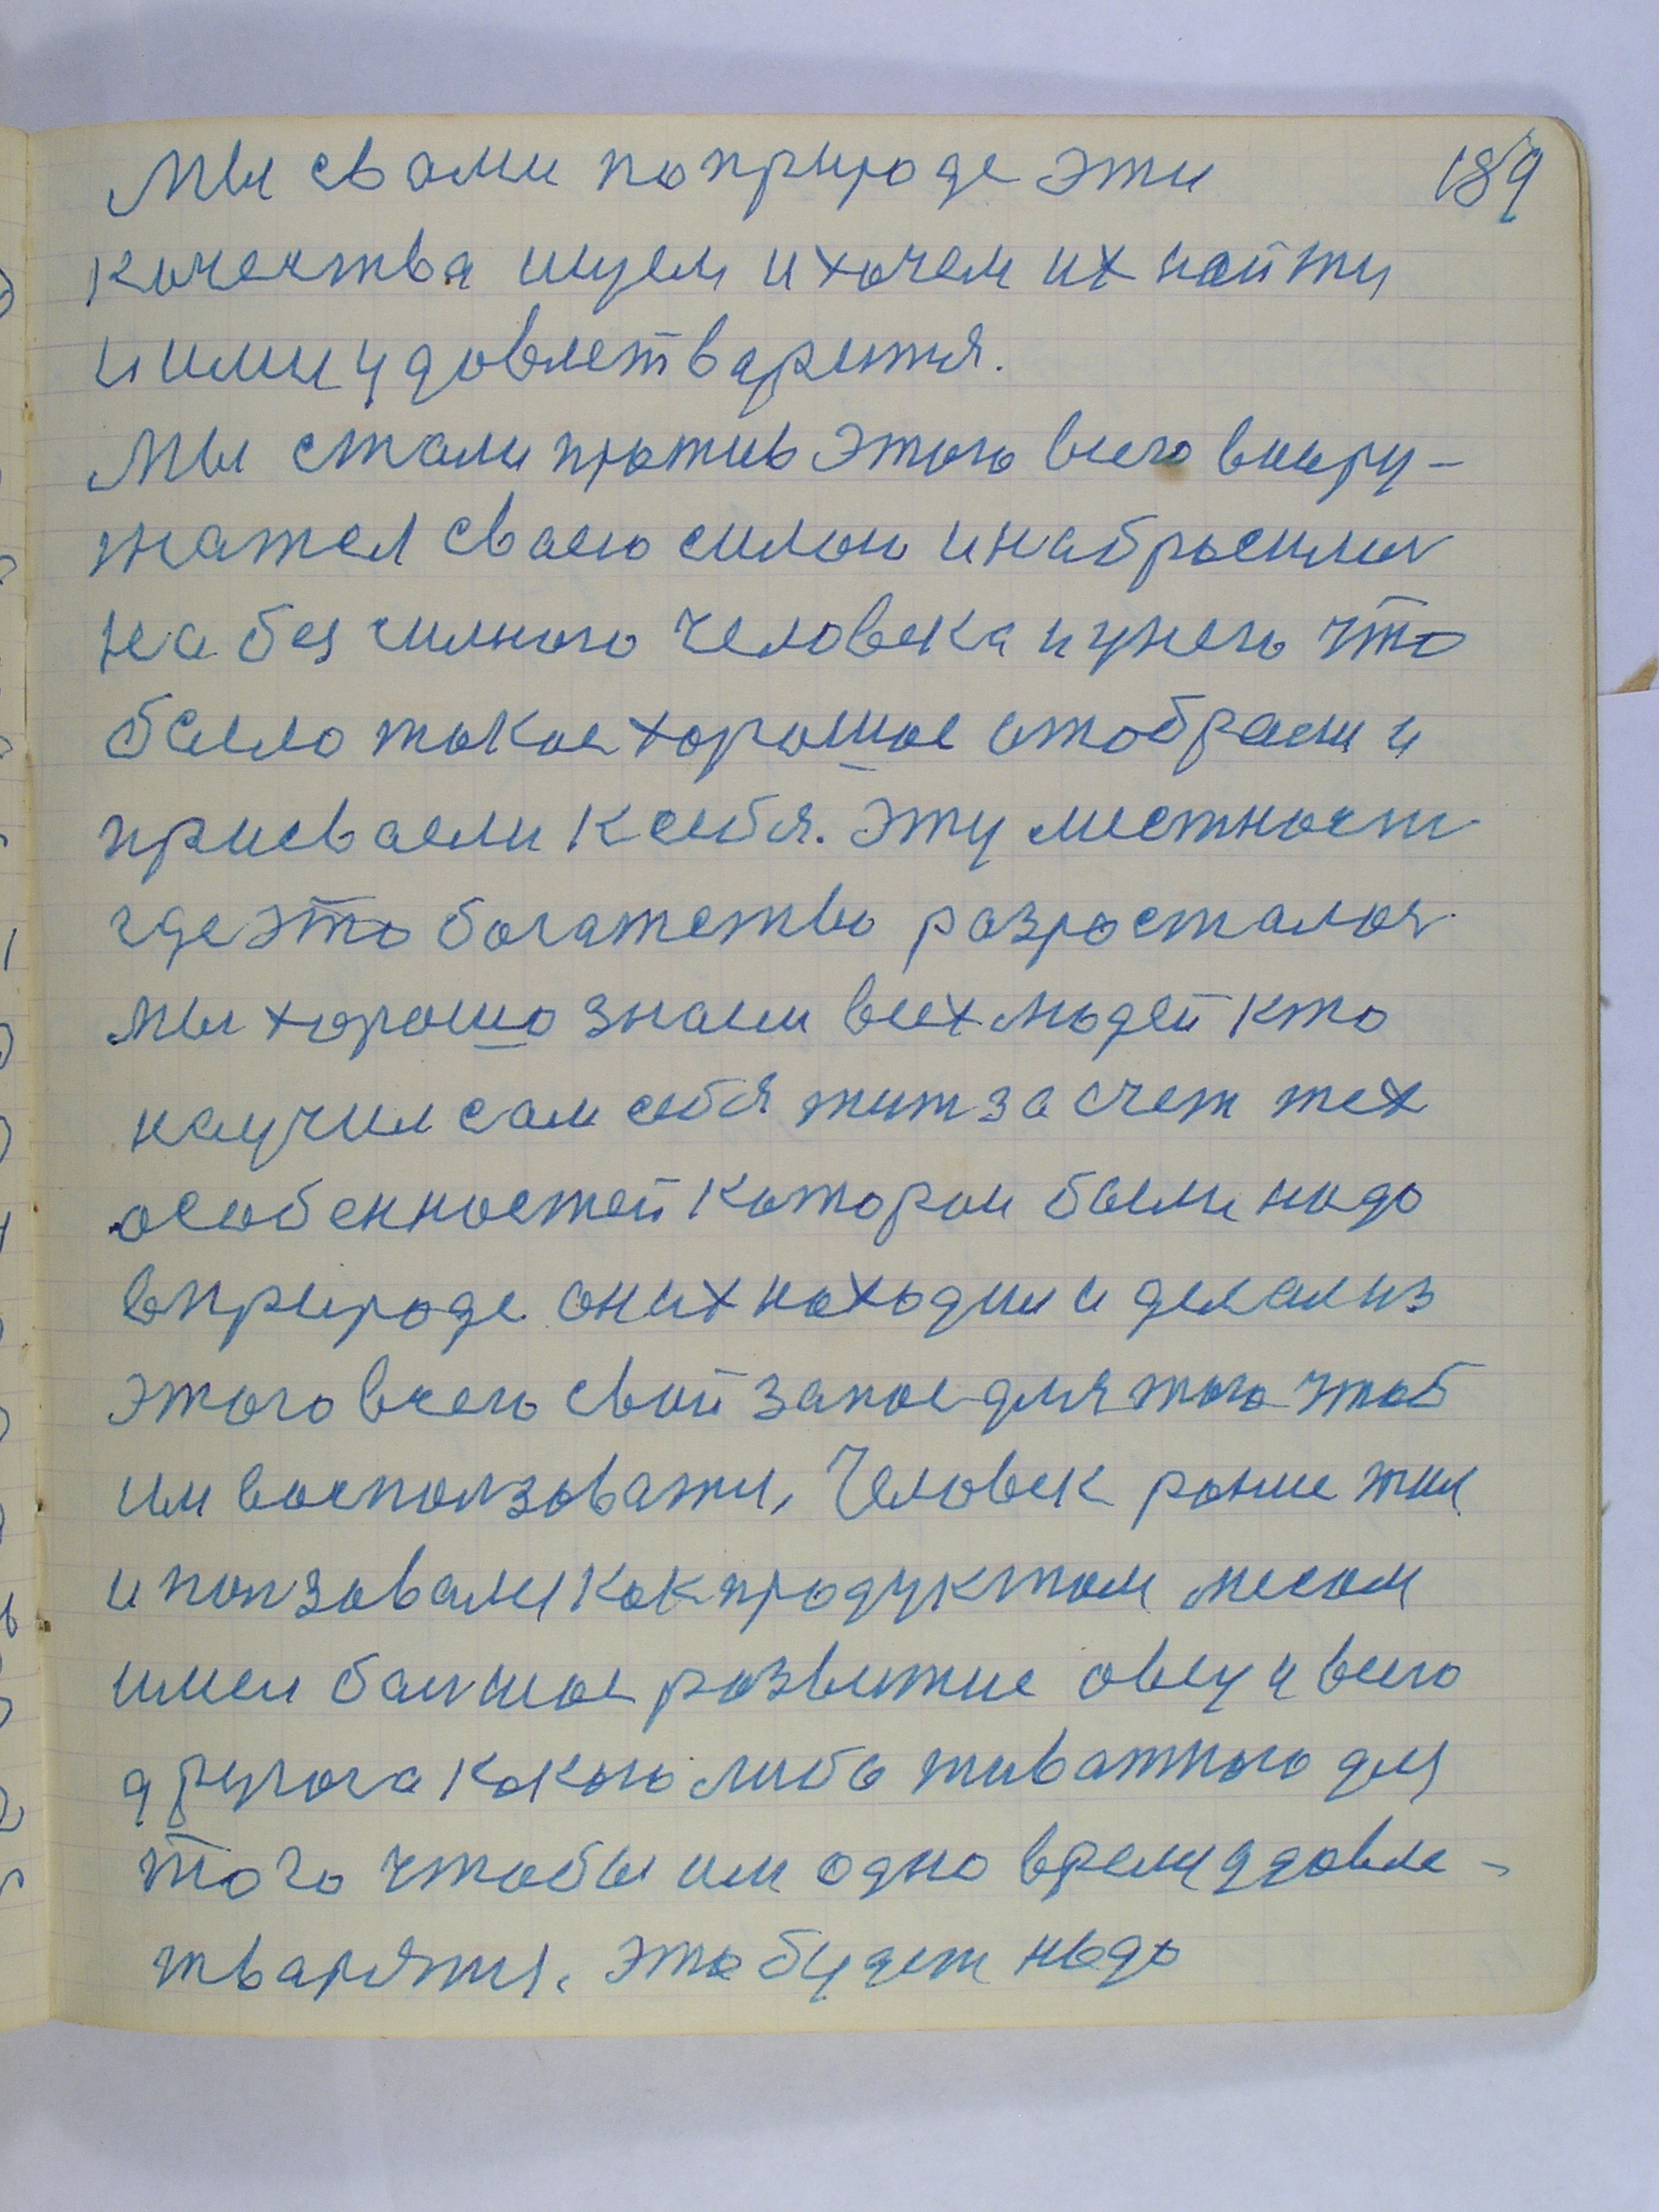 189
Мы свами поприроде эти
качества ищем и хочем их найти
и ими удовлетварится.
Мы стали против этого всего воору-
жатся сваею силои и набросились
на без силного человека и унего что
было такое хорошое отобрали и
присваели ксебя. Эту местность
где это богатство розросталось
мы хорошо знаем всех людей кто
научил сам себя жит за счет тех
особенностей которои были надо
вприроде они их находили и делали из
этого всего свой запас для того чтоб
им восползоватся, Человек ранше жил
и ползовался как продуктом мясом
имел балшое розвитие овец и всего
другога какого либо живатного для
того чтобы им одно время удовле-
тварятся. Это будет надо